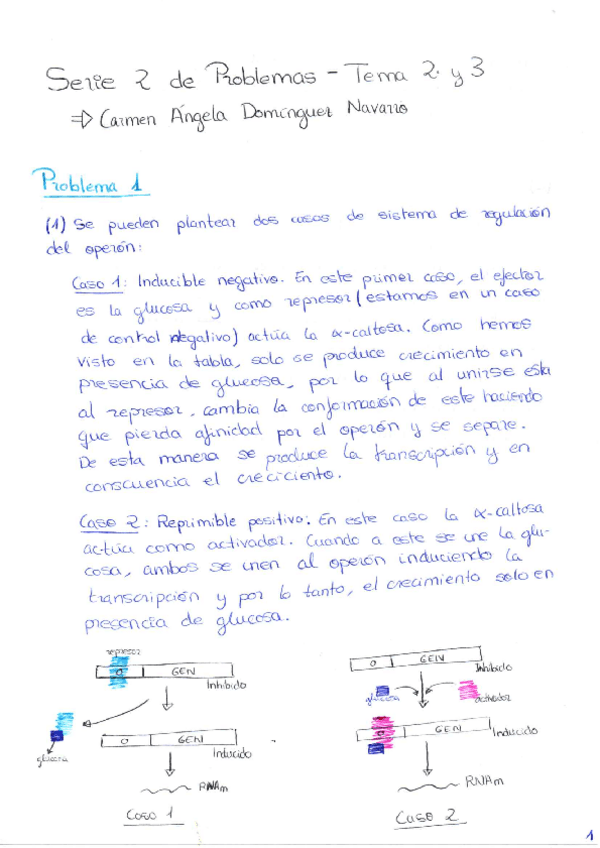 Serie 2 de Problemas - Tema 2 y 3
⇒ Carmen Ángela Domínguez Navarro
Problema 1
(1) Se pueden plantear dos casos de sistema de regulación
del operón:
Caso 1: Inducible negativo. En este primer caso, el efector
es la glucosa y como represor (estamos en un caso
de control negativo) actúa la α-caltosa. Como hemos
visto en la tabla, solo se produce crecimiento en
presencia de glucosa, por lo que al unirse esta
al represor, cambia la conformación de este haciendo
que pierda afinidad por el operón y se separe.
De esta manera se produce la transcripción y en
conscuencia el creciciento.
Caso 2: Reprimible positivo: En este caso la α-caltosa
actúa como activador. Cuando a este se une la glu-
cosa, ambos se unen al operón induciendo la
transcripción y por lo tanto, el crecimiento solo en
presencia de glucosa.
represor
O GEN
Inhibido
glucosa
O GEN
Inducido
RNAm
Caso 1
O GEN
Inhibido
glucosa
activador
O GEN
Inducido
RNAm
Caso 2
1